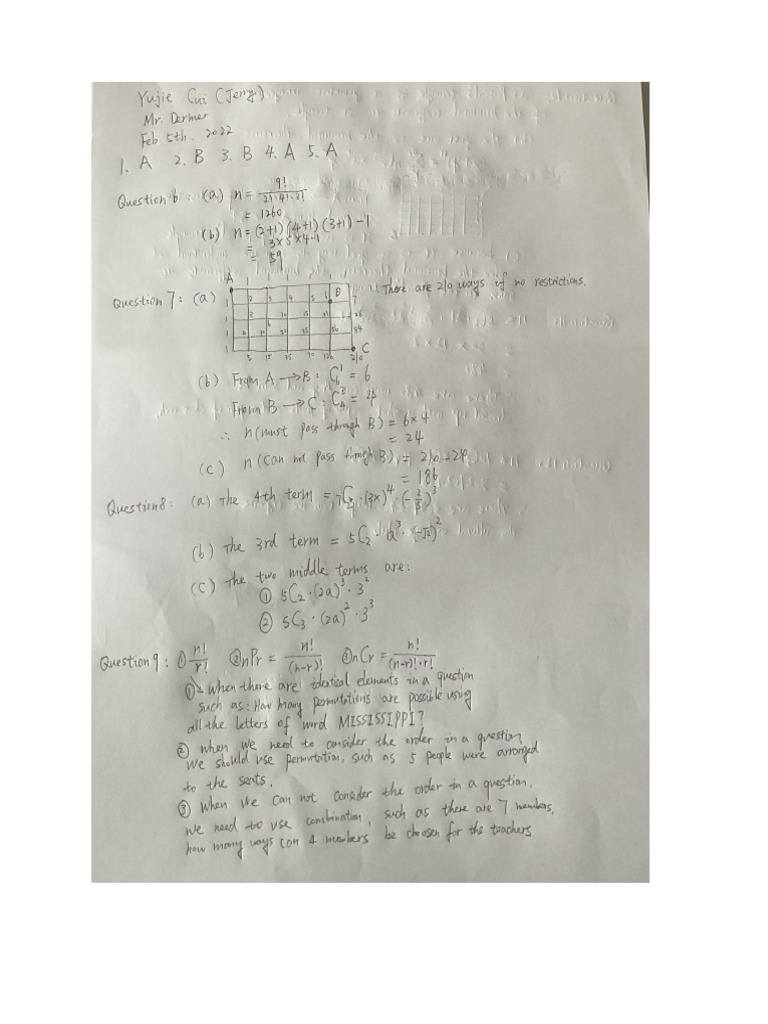 Yujie Cui (Jerry)
Mr. Dermer
Feb 5th. 2022
1. A 2. B 3. B 4. A 5. A
Question 6: (a) n = 9! / 2!·4!·2!
= 1260
(b) n = (2+1)(4+1)(3+1)-1
= 3×5×4-1
= 59
Question 7: (a) A B C There are 210 ways if no restrictions.
(b) From A → B: C₆¹ = 6
From B → C: C₄³ = 4
∴ n(must pass through B) = 6×4
= 24
(c) n (can not pass throgh B) = 210-24
= 186
Question 8: (a) The 4th term = ·(3x)⁴·
(b) The 3rd term = 5C₂·a³·(-√2)²
(c) The two middle terms are:
① 5C₂·(2a)³·3²
② 5C₃·(2a)²·3³
Question 9: ① n!/r! ② nPr = n!/(n-r)! ③ nCr = n!/(n-r)!·r!
① When there are identical elements in a question
such as: How many permutations are possible using
all the letters of word MISSISSIPPI?
② When we need to consider the order in a question,
We should use permutation, such as 5 people were arranged
to the seats.
③ When we can not consider the order in a question,
we need to use combination, such as there are 7 members,
how many ways can 4 members be choosen for the teachers